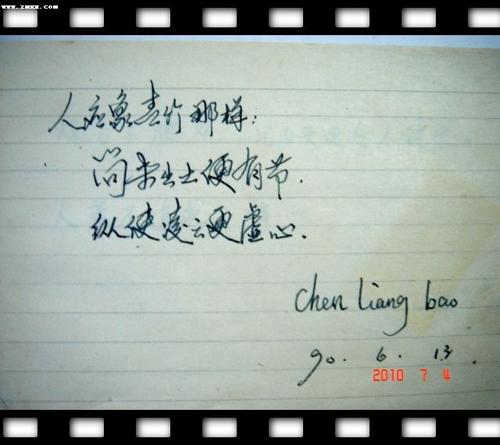 www.zmxx.com
人应象青竹那样:
尚未出土便有节.
纵使凌云更虚心.
Chen liang bao
90. 6. 13.
2010 7 4